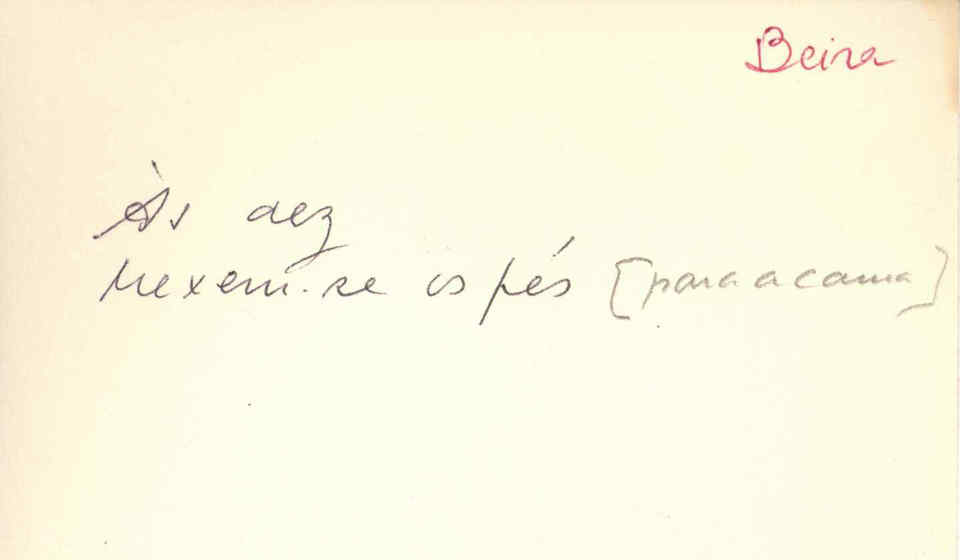 Beira
Às dez
Mexem-se os pés [para a cama]